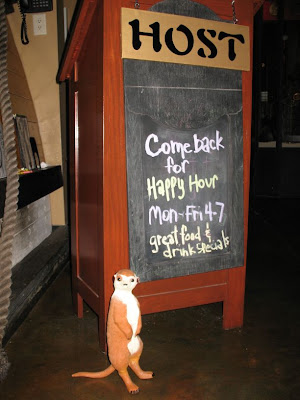 HOST
Come back
for
Happy Hour
Mon-Fri 4-7
great food &
drink specials